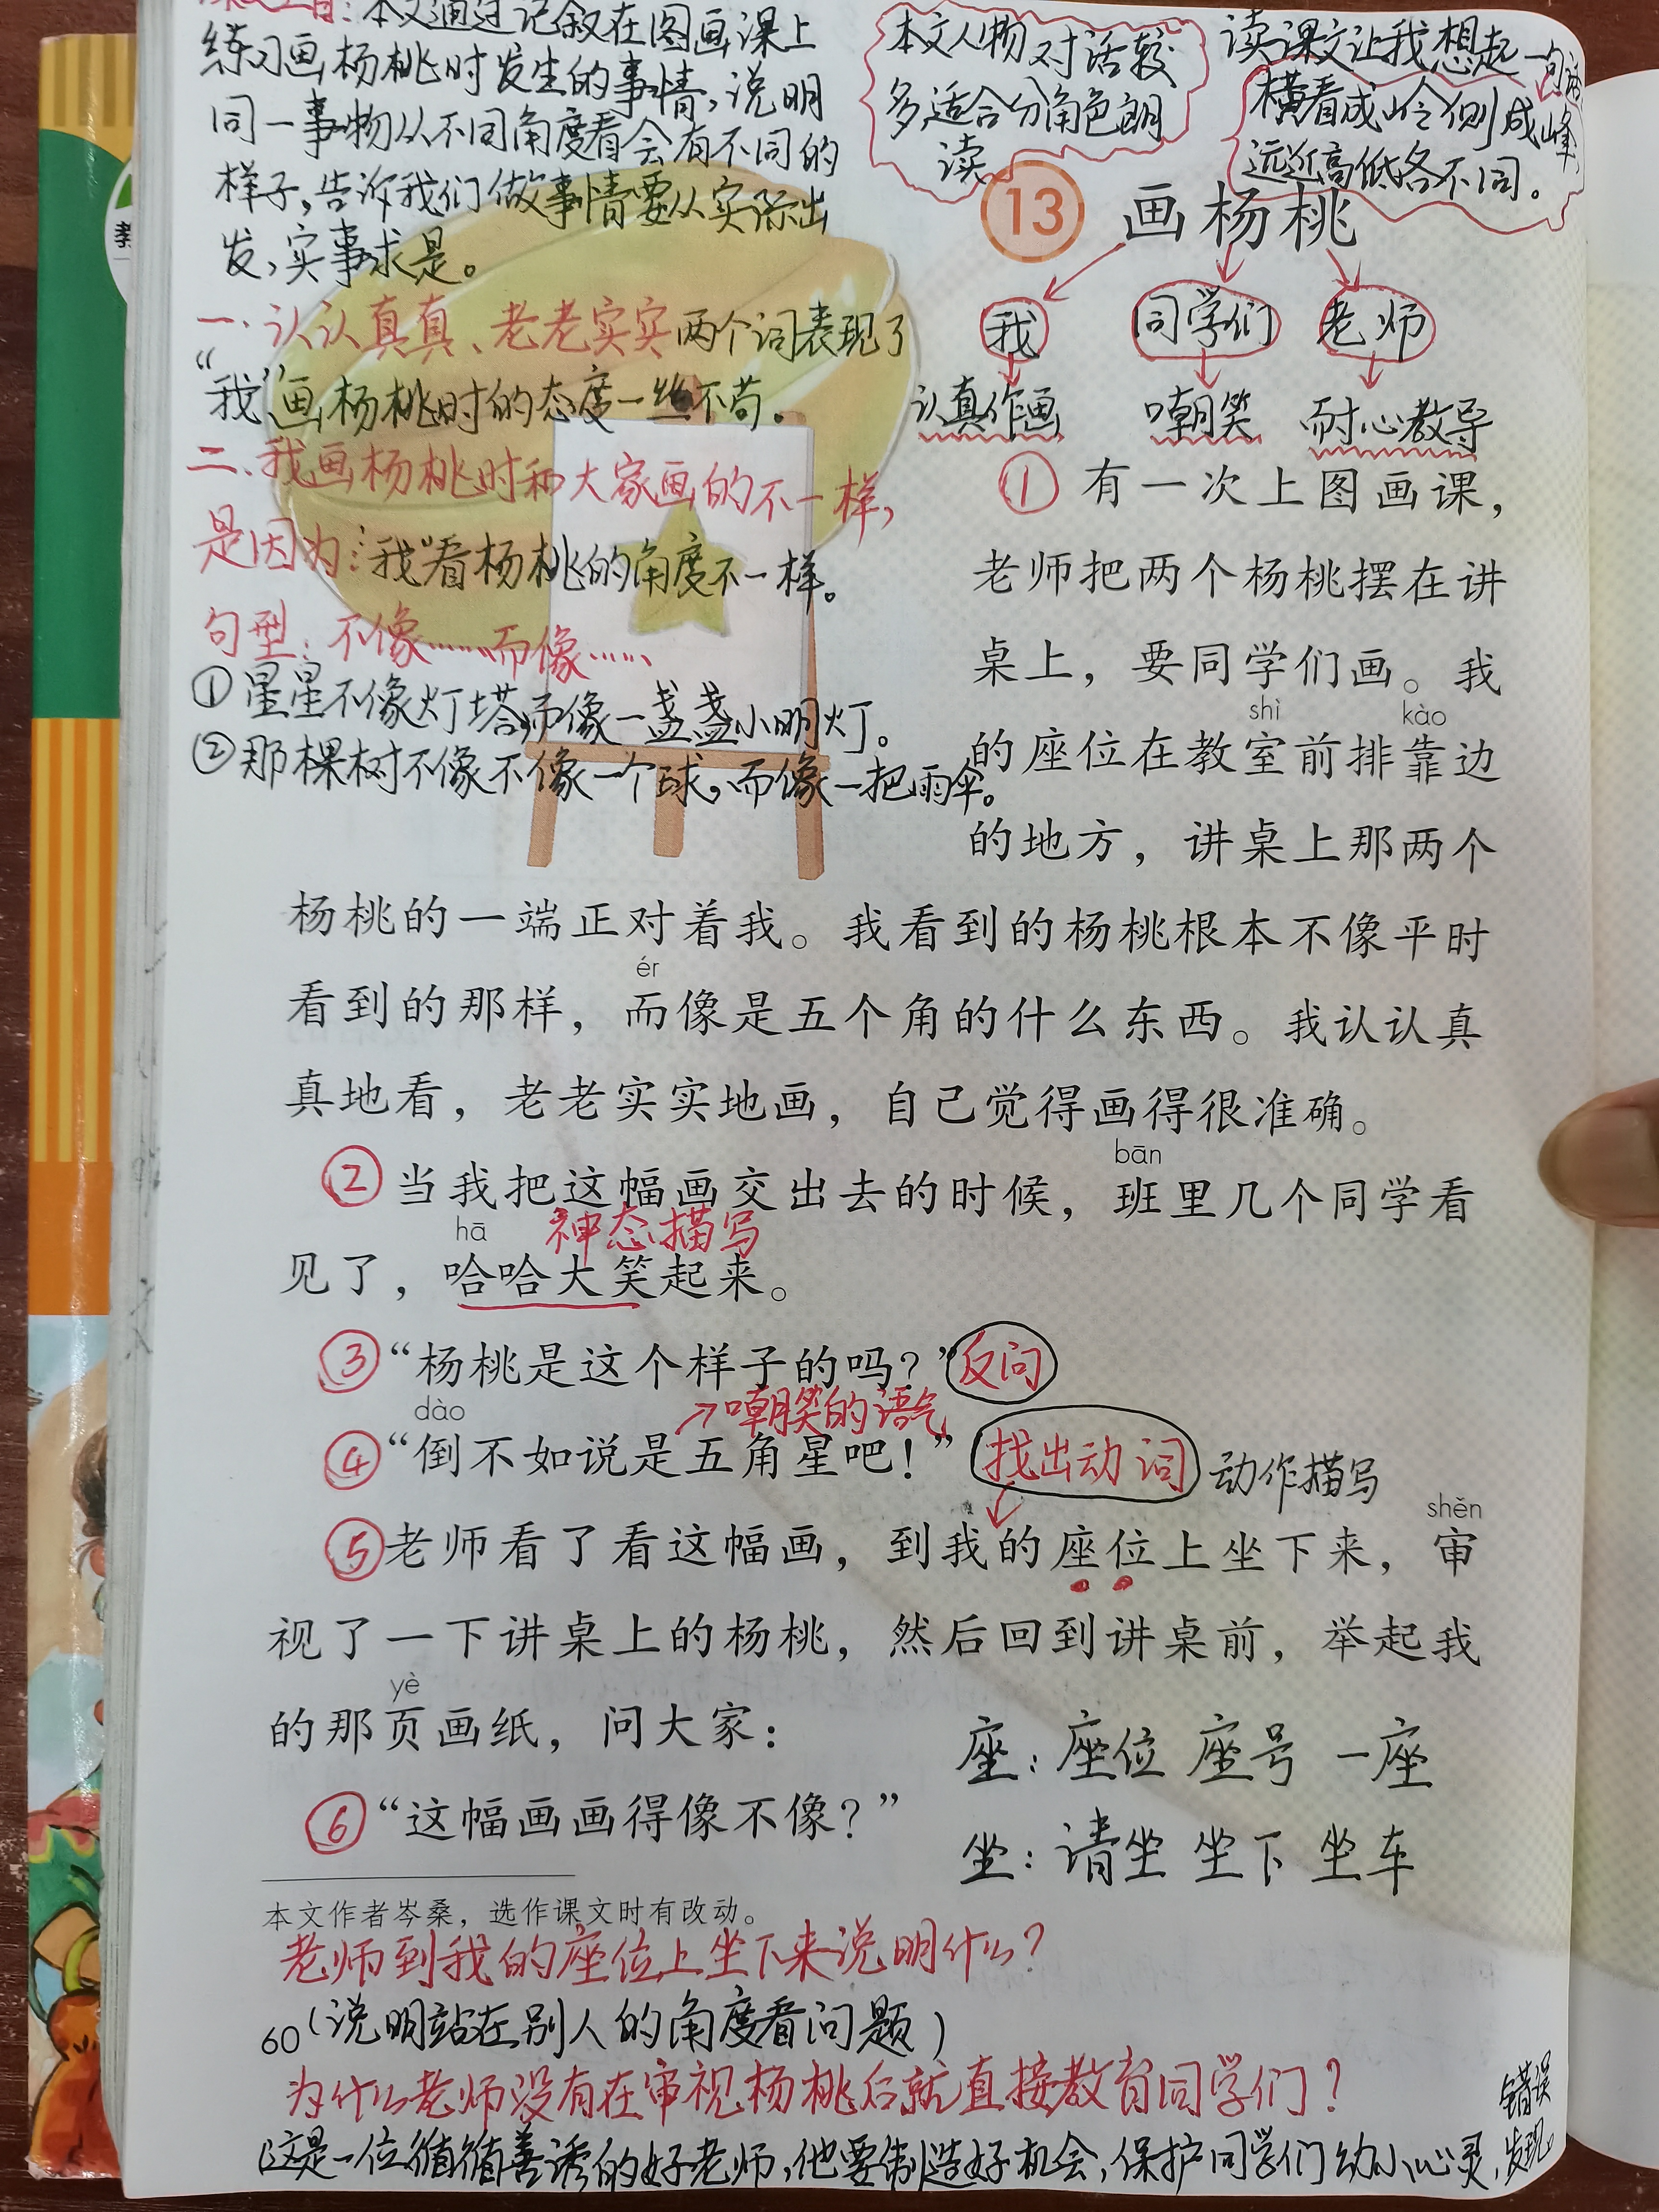 本文通过记叙在图画课上
练习画杨桃时发生的事情,说明
同一事物从不同角度看会有不同的
样子,告诉我们做事情要从实际出
发,实事求是。
一.认认真真、老老实实两个词表现了
“我”画杨桃时的态度一丝不苟。
二.我画杨桃时和大家画的不一样,
是因为:“我”看杨桃的角度不一样。
句型:不像……而像……
①星星不像灯塔,而像一盏盏小明灯。
②那棵树不像不像一个球,而像一把雨伞。
本文人物对话较
多,适合分角色朗
读
读课文让我想起一句话
横看成岭侧成峰,
远近高低各不同。
13 画杨桃
我 同学们 老师
认真作画 嘲笑 耐心教导
① 有一次上图画课,
老师把两个杨桃摆在讲
桌上,要同学们画。我
shì kào
的座位在教室前排靠边
的地方,讲桌上那两个
杨桃的一端正对着我。我看到的杨桃根本不像平时
ér
看到的那样,而像是五个角的什么东西。我认认真
真地看,老老实实地画,自己觉得画得很准确。
bān
② 当我把这幅画交出去的时候,班里几个同学看
hā 神态描写
见了,哈哈大笑起来。
③ “杨桃是这个样子的吗?” 反问
dào →嘲笑的语气
④ “倒不如说是五角星吧!” 找出动词 动作描写
shěn
⑤ 老师看了看这幅画,到我的座位上坐下来,审
视了一下讲桌上的杨桃,然后回到讲桌前,举起我
yè
的那页画纸,问大家:
座:座位 座号 一座
⑥ “这幅画画得像不像?”
坐:请坐 坐下 坐车
本文作者岑桑,选作课文时有改动。
老师到我的座位上坐下来说明什么?
60 (说明站在别人的角度看问题)
为什么老师没有在审视杨桃后就直接教育同学们?
(这是一位循循善诱的好老师,他要制造好机会,保护同学们幼小心灵,发现
错误